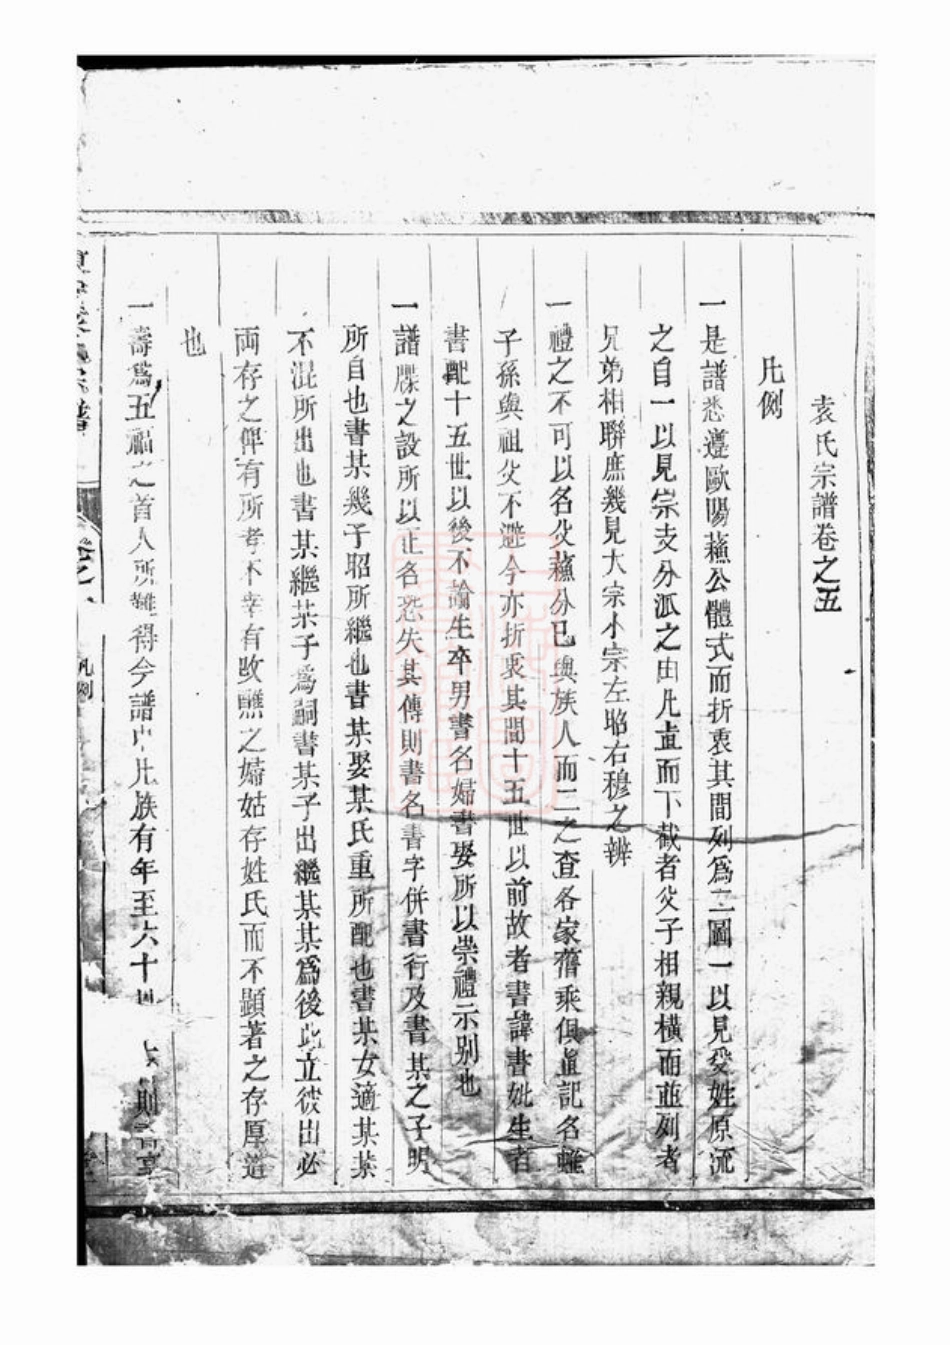 袁氏宗譜卷之五
凡例
一是譜悉遵歐陽蘓公體式而折衷其間列爲二圖一以見受姓原流
之自一以見宗支分派之由凡直而下截者父子相親橫而並列者
兄弟相聯庶幾見大宗小宗左昭右穆之辨
一禮之不可以名父蘓分已與族人而二之查各家舊乘俱直記名雖
子孫與祖父不避今亦折衷其間十五世以前故者書諱書妣生者
書配十五世以後不論生卒男書名婦書娶所以崇禮示别也
一譜牒之設所以正名恐失其傳則書名書字併書行及書某之子明
所自也書某幾子昭所繼也書某娶某氏重所配也書某女適某某
不混所出也書某繼某子爲嗣書某子出繼某某爲後此立彼出必
両存之俾有所考不幸有改醮之婦姑存姓氏而不顯著之存厚道
也
一壽爲五福之首人所難得今譜中凡族有年至六十 則書享
宗譜
卷之
凡例